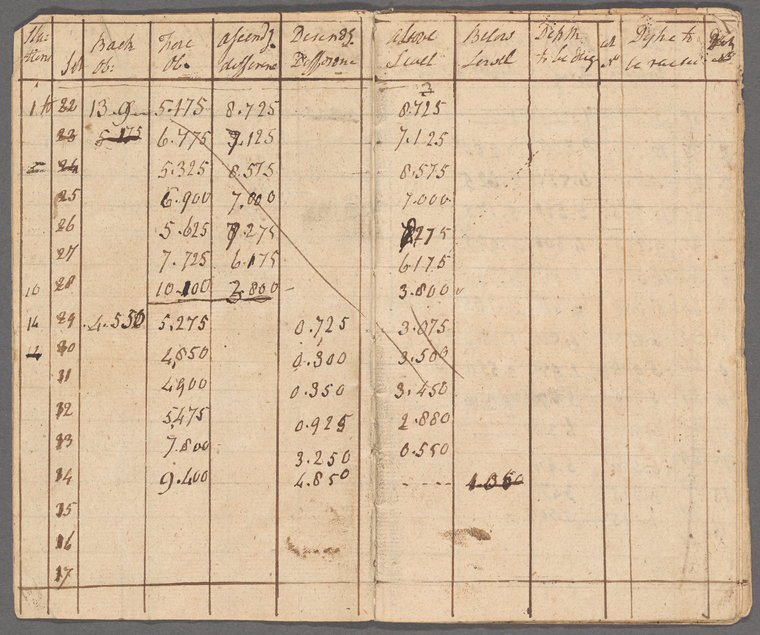 Sta- Back Fore Ascendg. Descendg. Above Below Depth at Depth to
tions Sd Ob: Ob. difference Difference Level Level to be dug be raised
1 to 22 13.9 5.175 8.725 8.725
23 5.175 6.775 7.125 7.125
24 5.325 8.575 8.575
25 6.900 7.000 7.000
26 5.625 8.275 8275
27 7.725 6.175 6175
10 28 10.100 3.800 3.800
14 29 4.550 5.275 0.725 3.075
12 30 4,850 0.300 3.500
31 4900 0.350 3.450
12 5.475 0.925 2.880
13 7.800 3.250 0.550
14 9.400 4.850 1.050
15
16
17